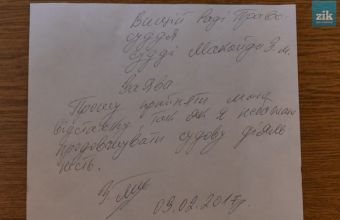 zik
Вищій Раді Право-
суддя
судді Макойда З. М.
Заява
Прошу прийняти мою
відставку, так як я не
продовжувати судову діяль
ність.
09.02.2017р.